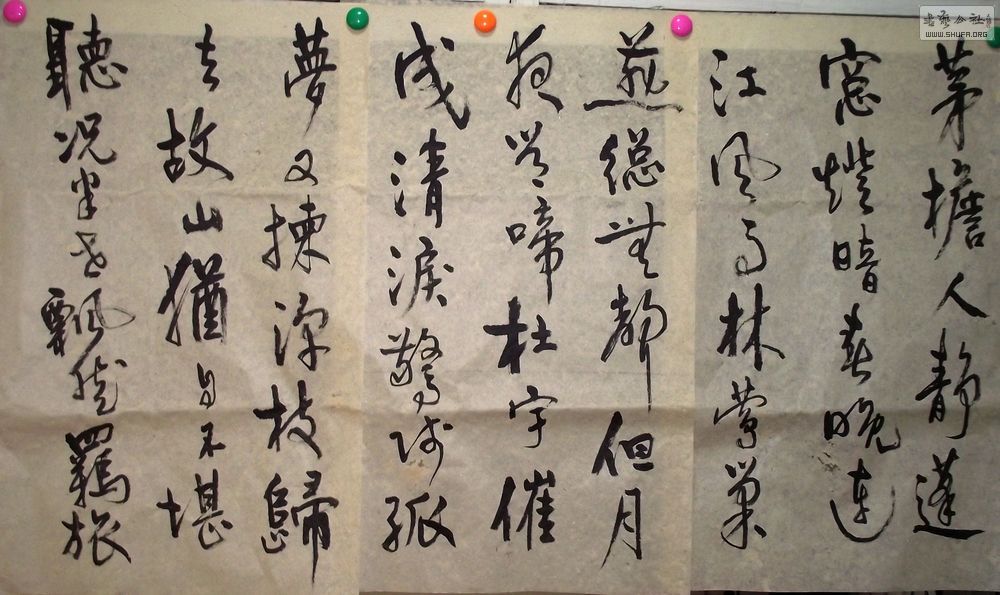 茅檐人静蓬
窓燈暗春晚連
江風雨林鶯巢
燕總無聲但月
夜常啼杜宇催
成清淚驚殘孤
夢又揀深枝歸
去故山猶自不堪
聽况半世飄然羈旅
書藝公社
WWW.SHUFA.ORG